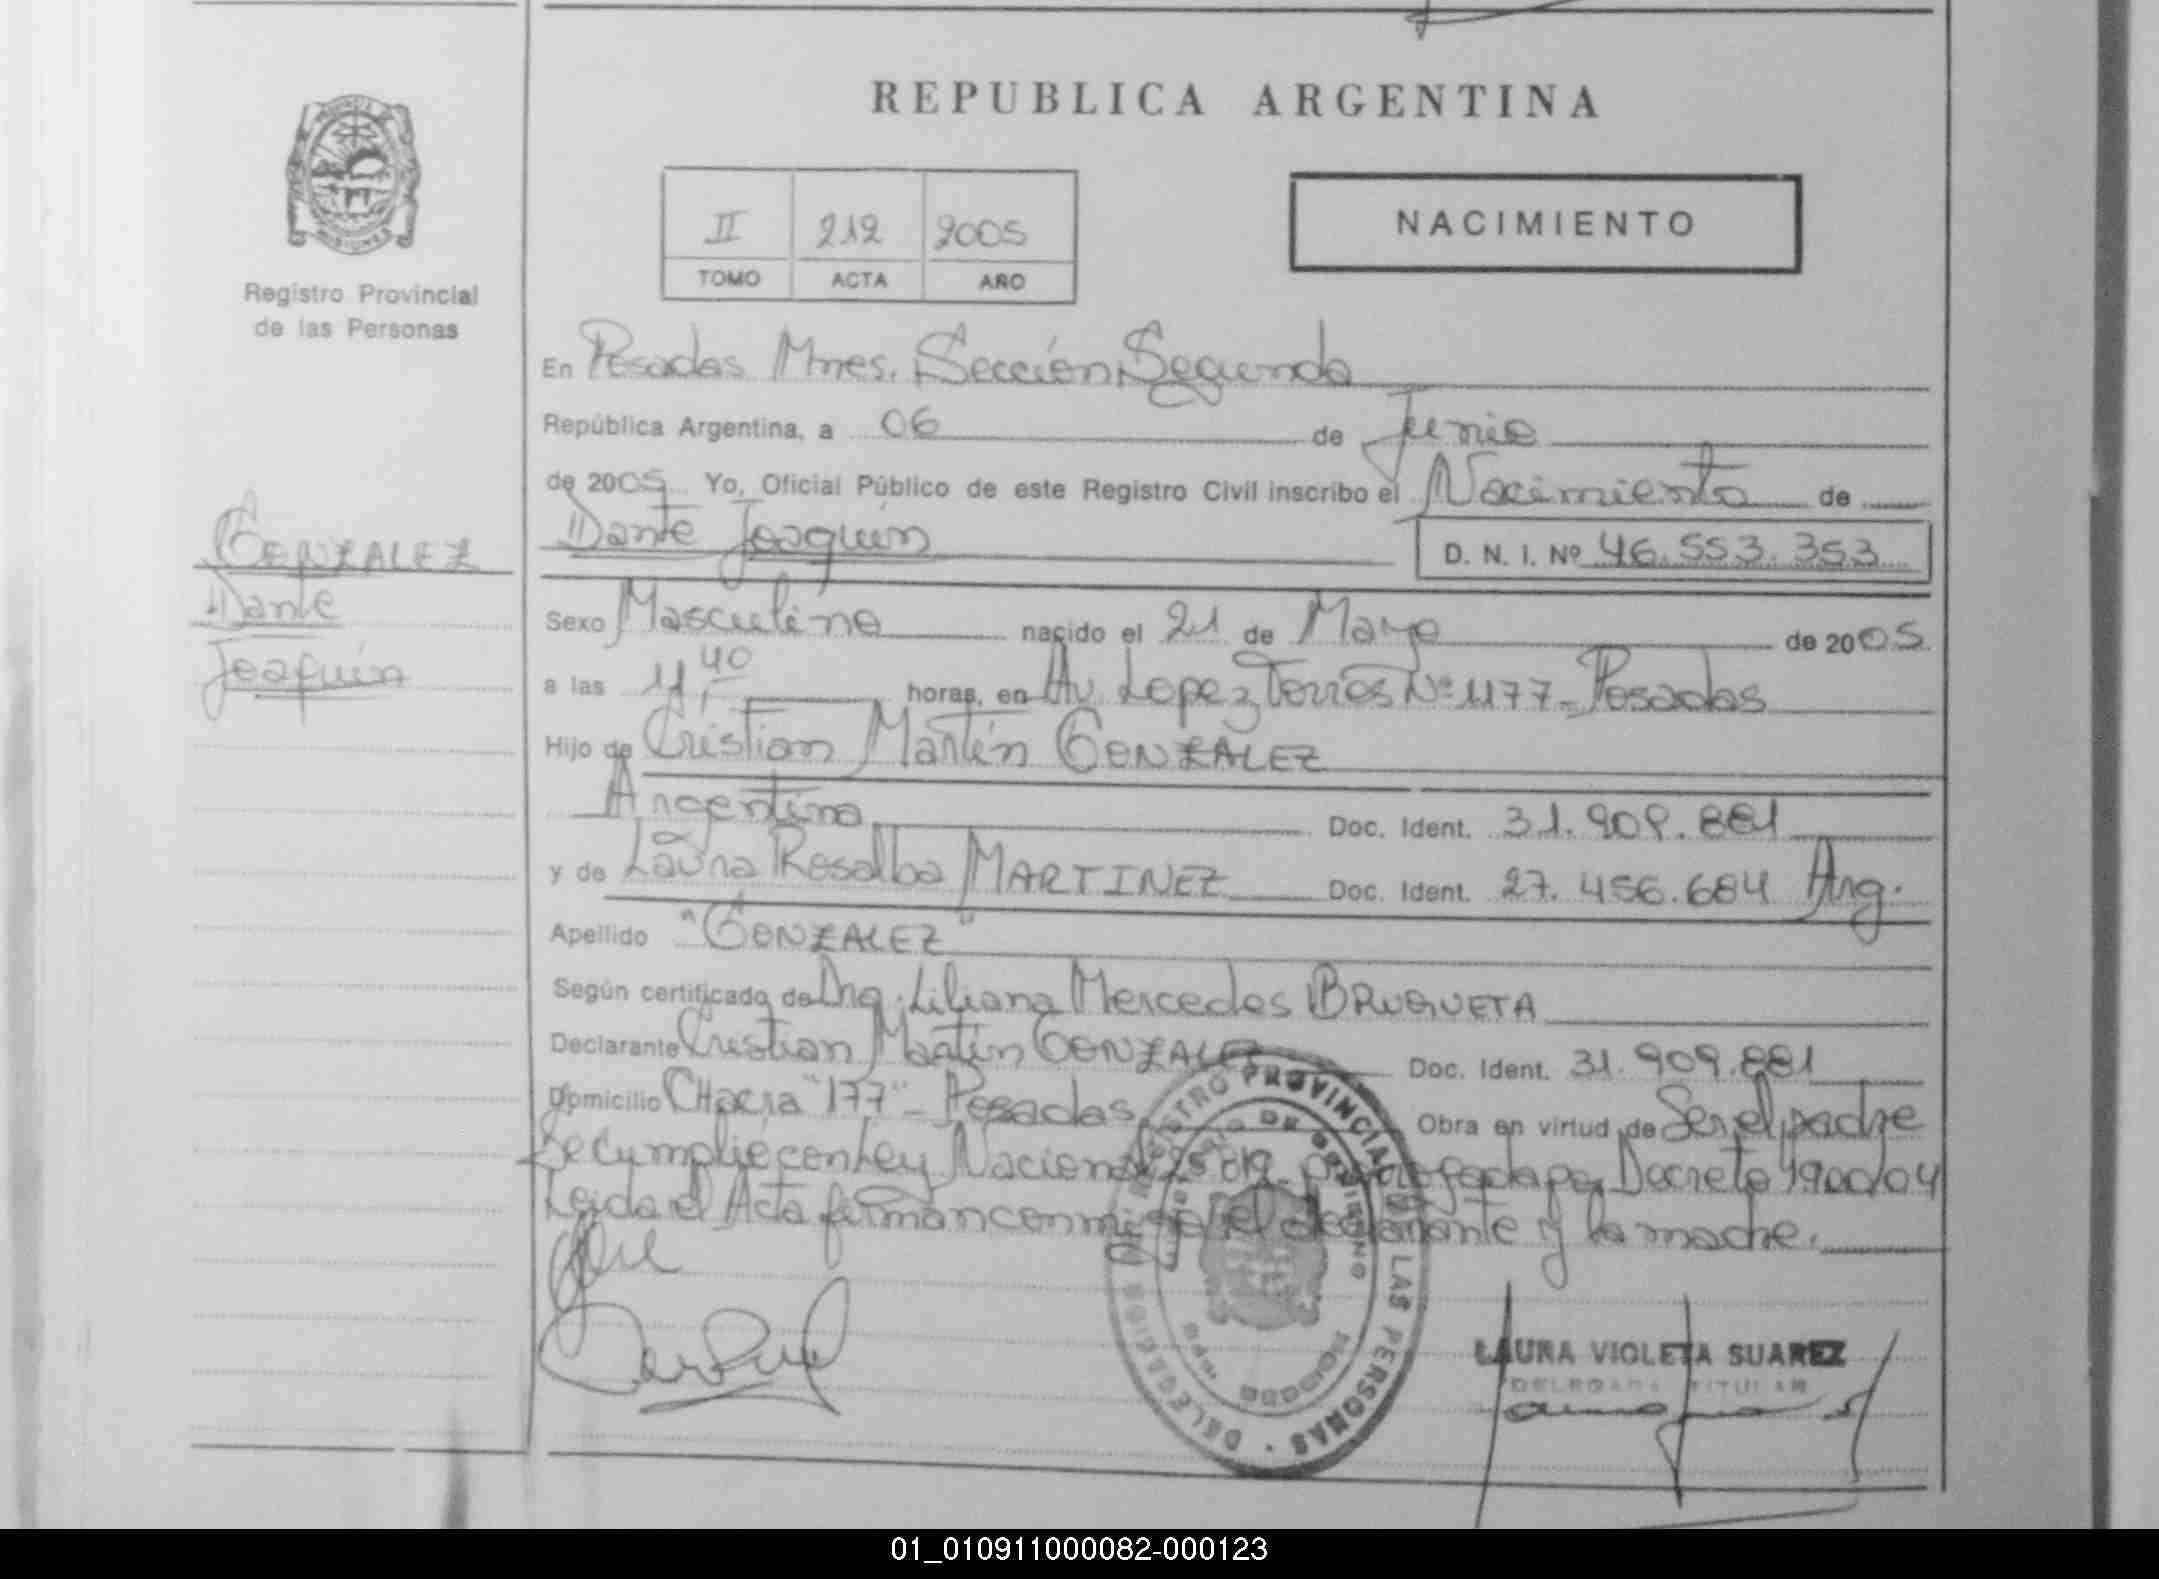 REPUBLICA ARGENTINA
PROVINCIA
MISIONES
Registro Provincial
de las Personas
II 212 2005
TOMO ACTA AÑO
NACIMIENTO
En Posadas Mnes. Sección Segunda
República Argentina, a 06 de Junio
de 2005 Yo, Oficial Público de este Registro Civil inscribo el Nacimiento de
Dante Joaquín
D. N. I. Nº 46.553.353
GONZALEZ
Dante
Joaquín
Sexo Masculino nacido el 21 de Mayo de 2005.
a las 11,40 horas, en Av. Lopez Torres Nº 1177 - Posadas
Hijo de Cristian Martín GONZALEZ
Argentina Doc. Ident. 31.909.881
y de Laura Rosalba MARTINEZ Doc. Ident. 27.456.684 Arg.
Apellido "GONZALEZ"
Según certificado de Liliana Mercedes BRUQUETA
Declarante Cristian Martín GONZALEZ Doc. Ident. 31.909.881
Domicilio CHacra "177" - Posadas
Obra en virtud de Ser el padre
Se Cumplió con Ley Nacional por Decreto 1900/04
Leida el Acta firman conmigo el declarante y la madre.
REGISTRO PROVINCIAL DE LAS PERSONAS · DELEGACION
LAURA VIOLETA SUAREZ
DELEGADA TITULAR
01_010911000082-000123